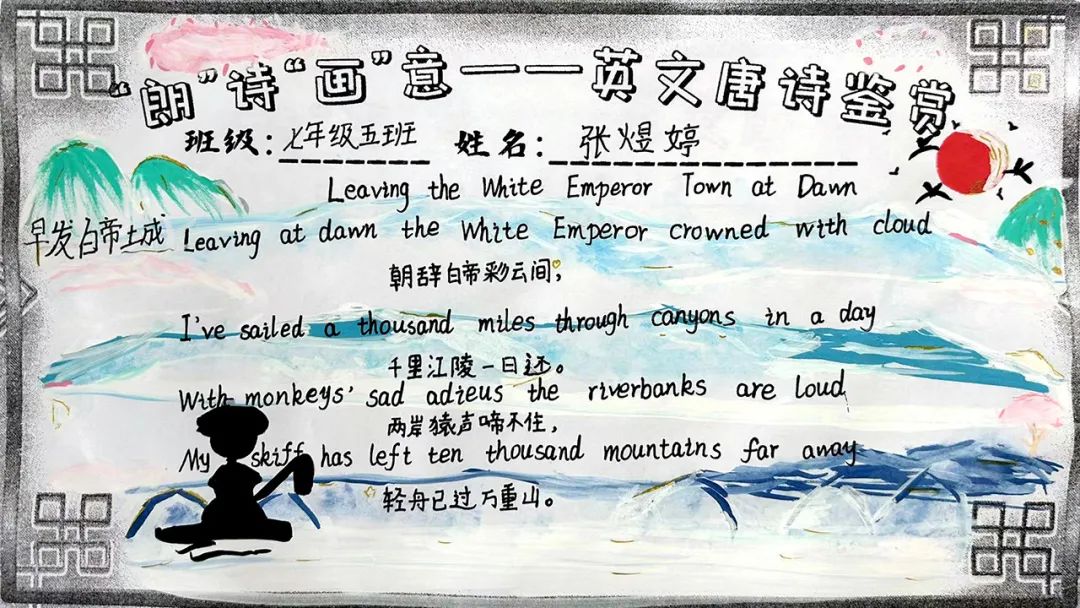 “朗”诗“画”意——英文唐诗鉴赏
班级：七年级五班 姓名：张煜婷
Leaving the White Emperor Town at Dawn
早发白帝城
Leaving at dawn the White Emperor crowned with cloud
朝辞白帝彩云间，
I've sailed a thousand miles through canyons in a day
千里江陵一日还。
With monkeys' sad adieus the riverbanks are loud
两岸猿声啼不住，
My skiff has left ten thousand mountains far away
轻舟已过万重山。